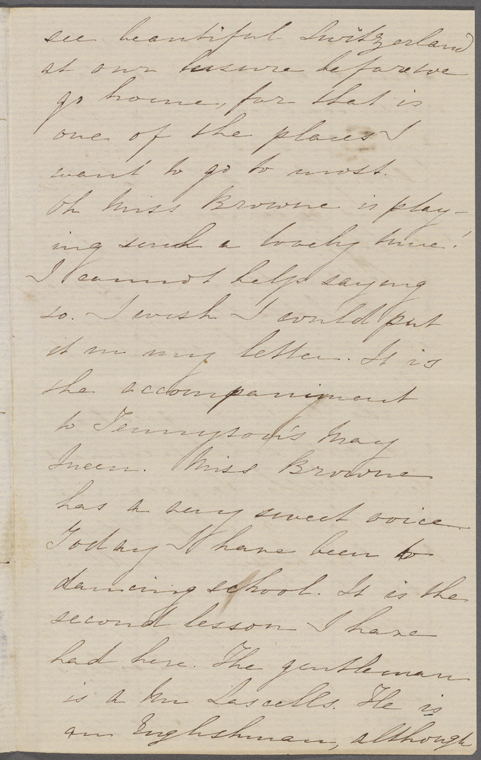 see beautiful Switzerland
at our leisure before we
go home, for that is
one of the places I
want to go to most.
Oh Miss Browne is play-
ing such a lovely tune!
I cannot help saying
so. I wish I could put
it in my letter. It is
the accompaniment
to Tennyson's May
Queen. Miss Browne
has a very sweet voice.
Today I have been to
dancing school. It is the
second lesson I have
had here. The gentleman
is a Mr Lascells. He is
an Englishman, although